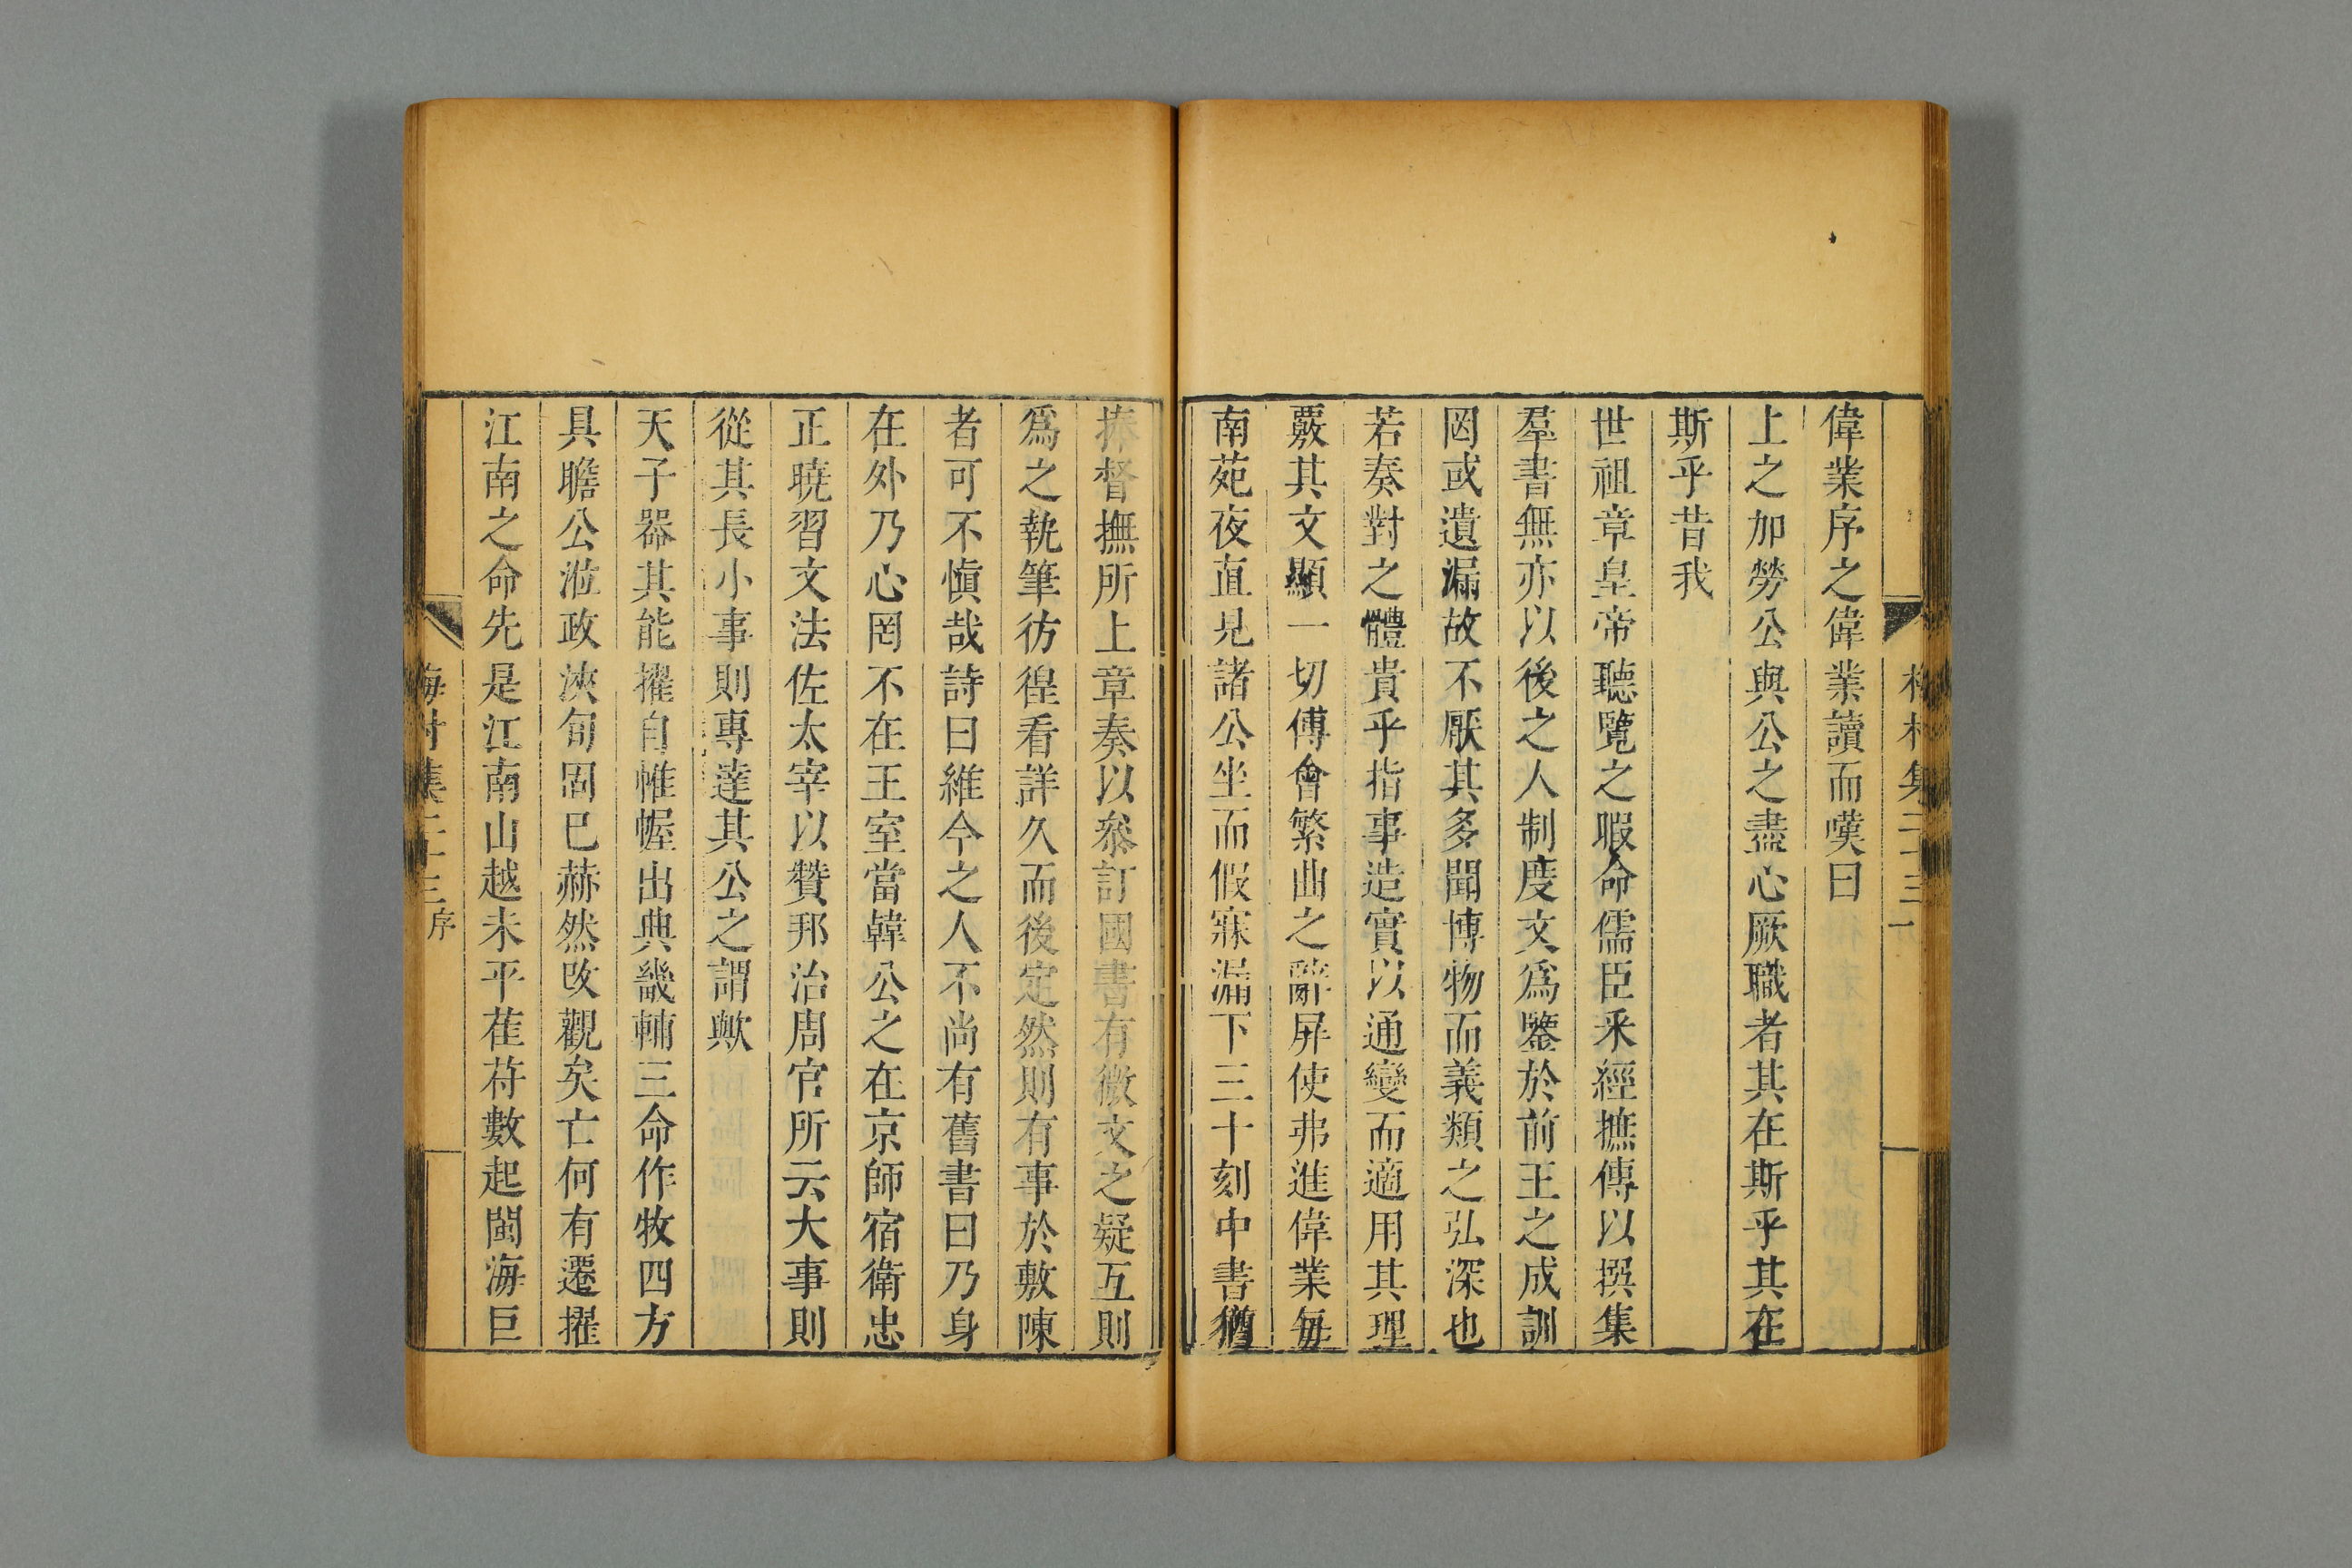 偉業序之偉業讀而嘆曰
上之加勞公與公之盡心厥職者其在斯乎其在
斯乎昔我
世祖章皇帝聽覽之暇命儒臣采經摭傳以撰集
羣書無亦以後之人制度文爲鑒於前王之成訓
罔或遺漏故不厭其多聞博物而義類之弘深也
若奏對之體貴乎指事造實以通變而適用其理
覈其文顯一切傅會繁曲之辭屏使弗進偉業每
南苑夜直見諸公坐而假寐漏下三十刻中書猶
捧督撫所上章奏以叅訂國書有微文之疑互則
爲之執筆彷徨看詳久而後定然則有事於敷陳
者可不慎哉詩曰維今之人不尚有舊書曰乃身
在外乃心罔不在王室當韓公之在京師宿衛忠
正曉習文法佐太宰以贊邦治周官所云大事則
從其長小事則專達其公之謂歟
天子器其能擢自帷幄出典畿輔三命作牧四方
具瞻公涖政浹旬固已赫然改觀矣亡何有遷擢
江南之命先是江南山越未平萑苻數起閩海巨
梅村集二十三 序